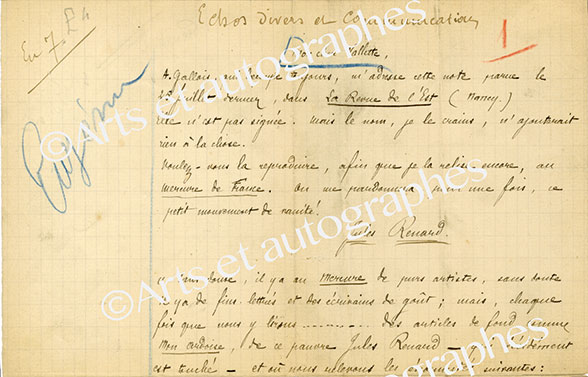 Echos divers et communications
En 7. P4
1
Mon cher Vallette,
A. Gallois, qui voyage toujours, m'adresse cette note parue le
juillet dernier, dans La Revue de l'Est (Nancy.)
Elle n'est pas signée. Mais le nom, je le crains, n'ajouterait
rien à la chose.
Voulez-vous la reproduire, afin que je la relise encore, au
Mercure de France. On me pardonnera, pour une fois, ce
petit mouvement de vanité!
Jules Renard.
sans doute, il y a au Mercure de purs artistes, sans doute
il y a de fins lettrés et des écrivains de goût; mais, chaque
fois que nous y lisons ........ des articles de fond comme
Mon ardoise, de ce pauvre Jules Renard – qui décidément
est touché – et où nous relevons les suivantes:
©Arts et autographes
©Arts et autographes
©Arts et autographes